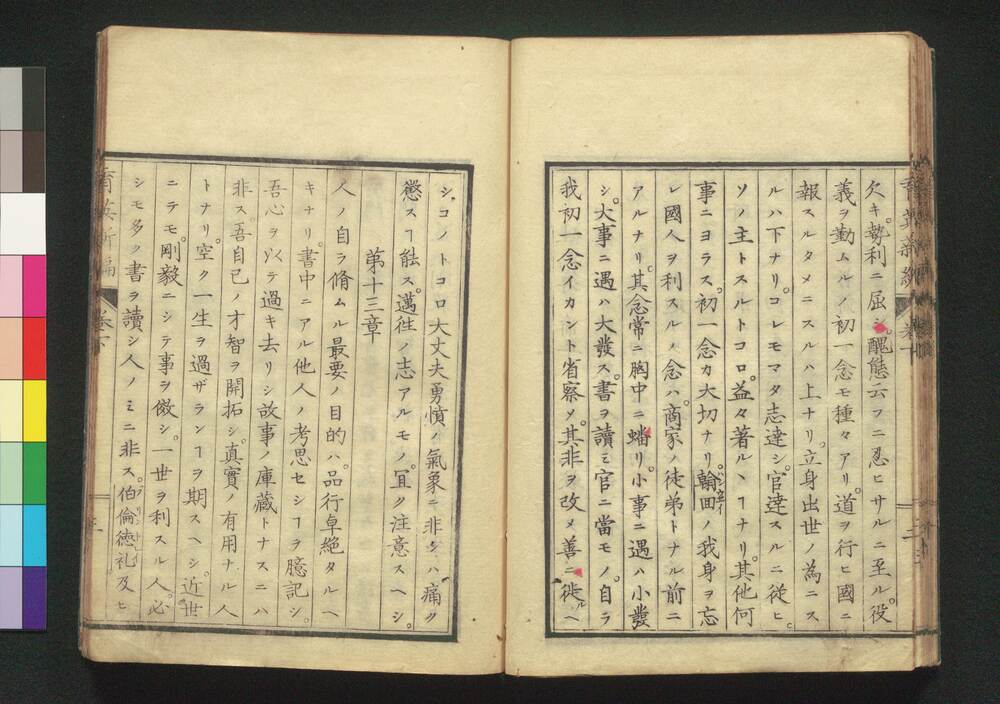 欠キ。勢利ニ屈シ。醜態云フニ忍ヒサルニ至ル。役
義ヲ勤ムルノ初一念モ種々アリ。道ヲ行ヒ國ニ
報スルタメニスルハ上ナリ。立身出世ノ為ニス
ルハ下ナリ。コレモマタ志達シ。官達スルニ従ヒ。
ソノ主トスルトコロ。益々著ルヽヿナリ。其他何
事ニヨラス。初一念カ大切ナリ。翰回ノ我身ヲ忘
レ國人ヲ利スルノ念ハ。商家ノ徒弟トナル前ニ
アルナリ。其念常ニ胸中ニ蟠リ。小事ニ遇ハ小發
シ。大事ニ遇ハ大發ス。書ヲ讀ミ官ニ當モノ。自ラ
我初一念イカント省察ソ。其非ヲ改メ善ニ徙ルヘ
シ。コノトコロ大丈夫勇憤ノ氣象ニ非シハ痛ク
懲スヿ能ス。邁往ノ志アルモノ。冝ク注意スヘシ。
第十三章
人ノ自ラ脩ムル最要ノ目的ハ。品行卓絶タルヘ
キナリ。書中ニアル他人ノ考思セシヿヲ臆記シ。
吾心ヲ以テ過キ去リシ故事ノ庫藏トナスニハ
非ス。吾自己ノ才智ヲ開拓シ。真實ノ有用ナル人
トナリ。空ク一生ヲ過ザランヿヲ期スヘシ。近世
ニテモ。剛毅ニシテ事ヲ做シ。一世ヲ利スル人。必
シモ多ク書ヲ讀シ人ノミニ非ス。伯倫徳礼及ヒ
育英新編 巻下